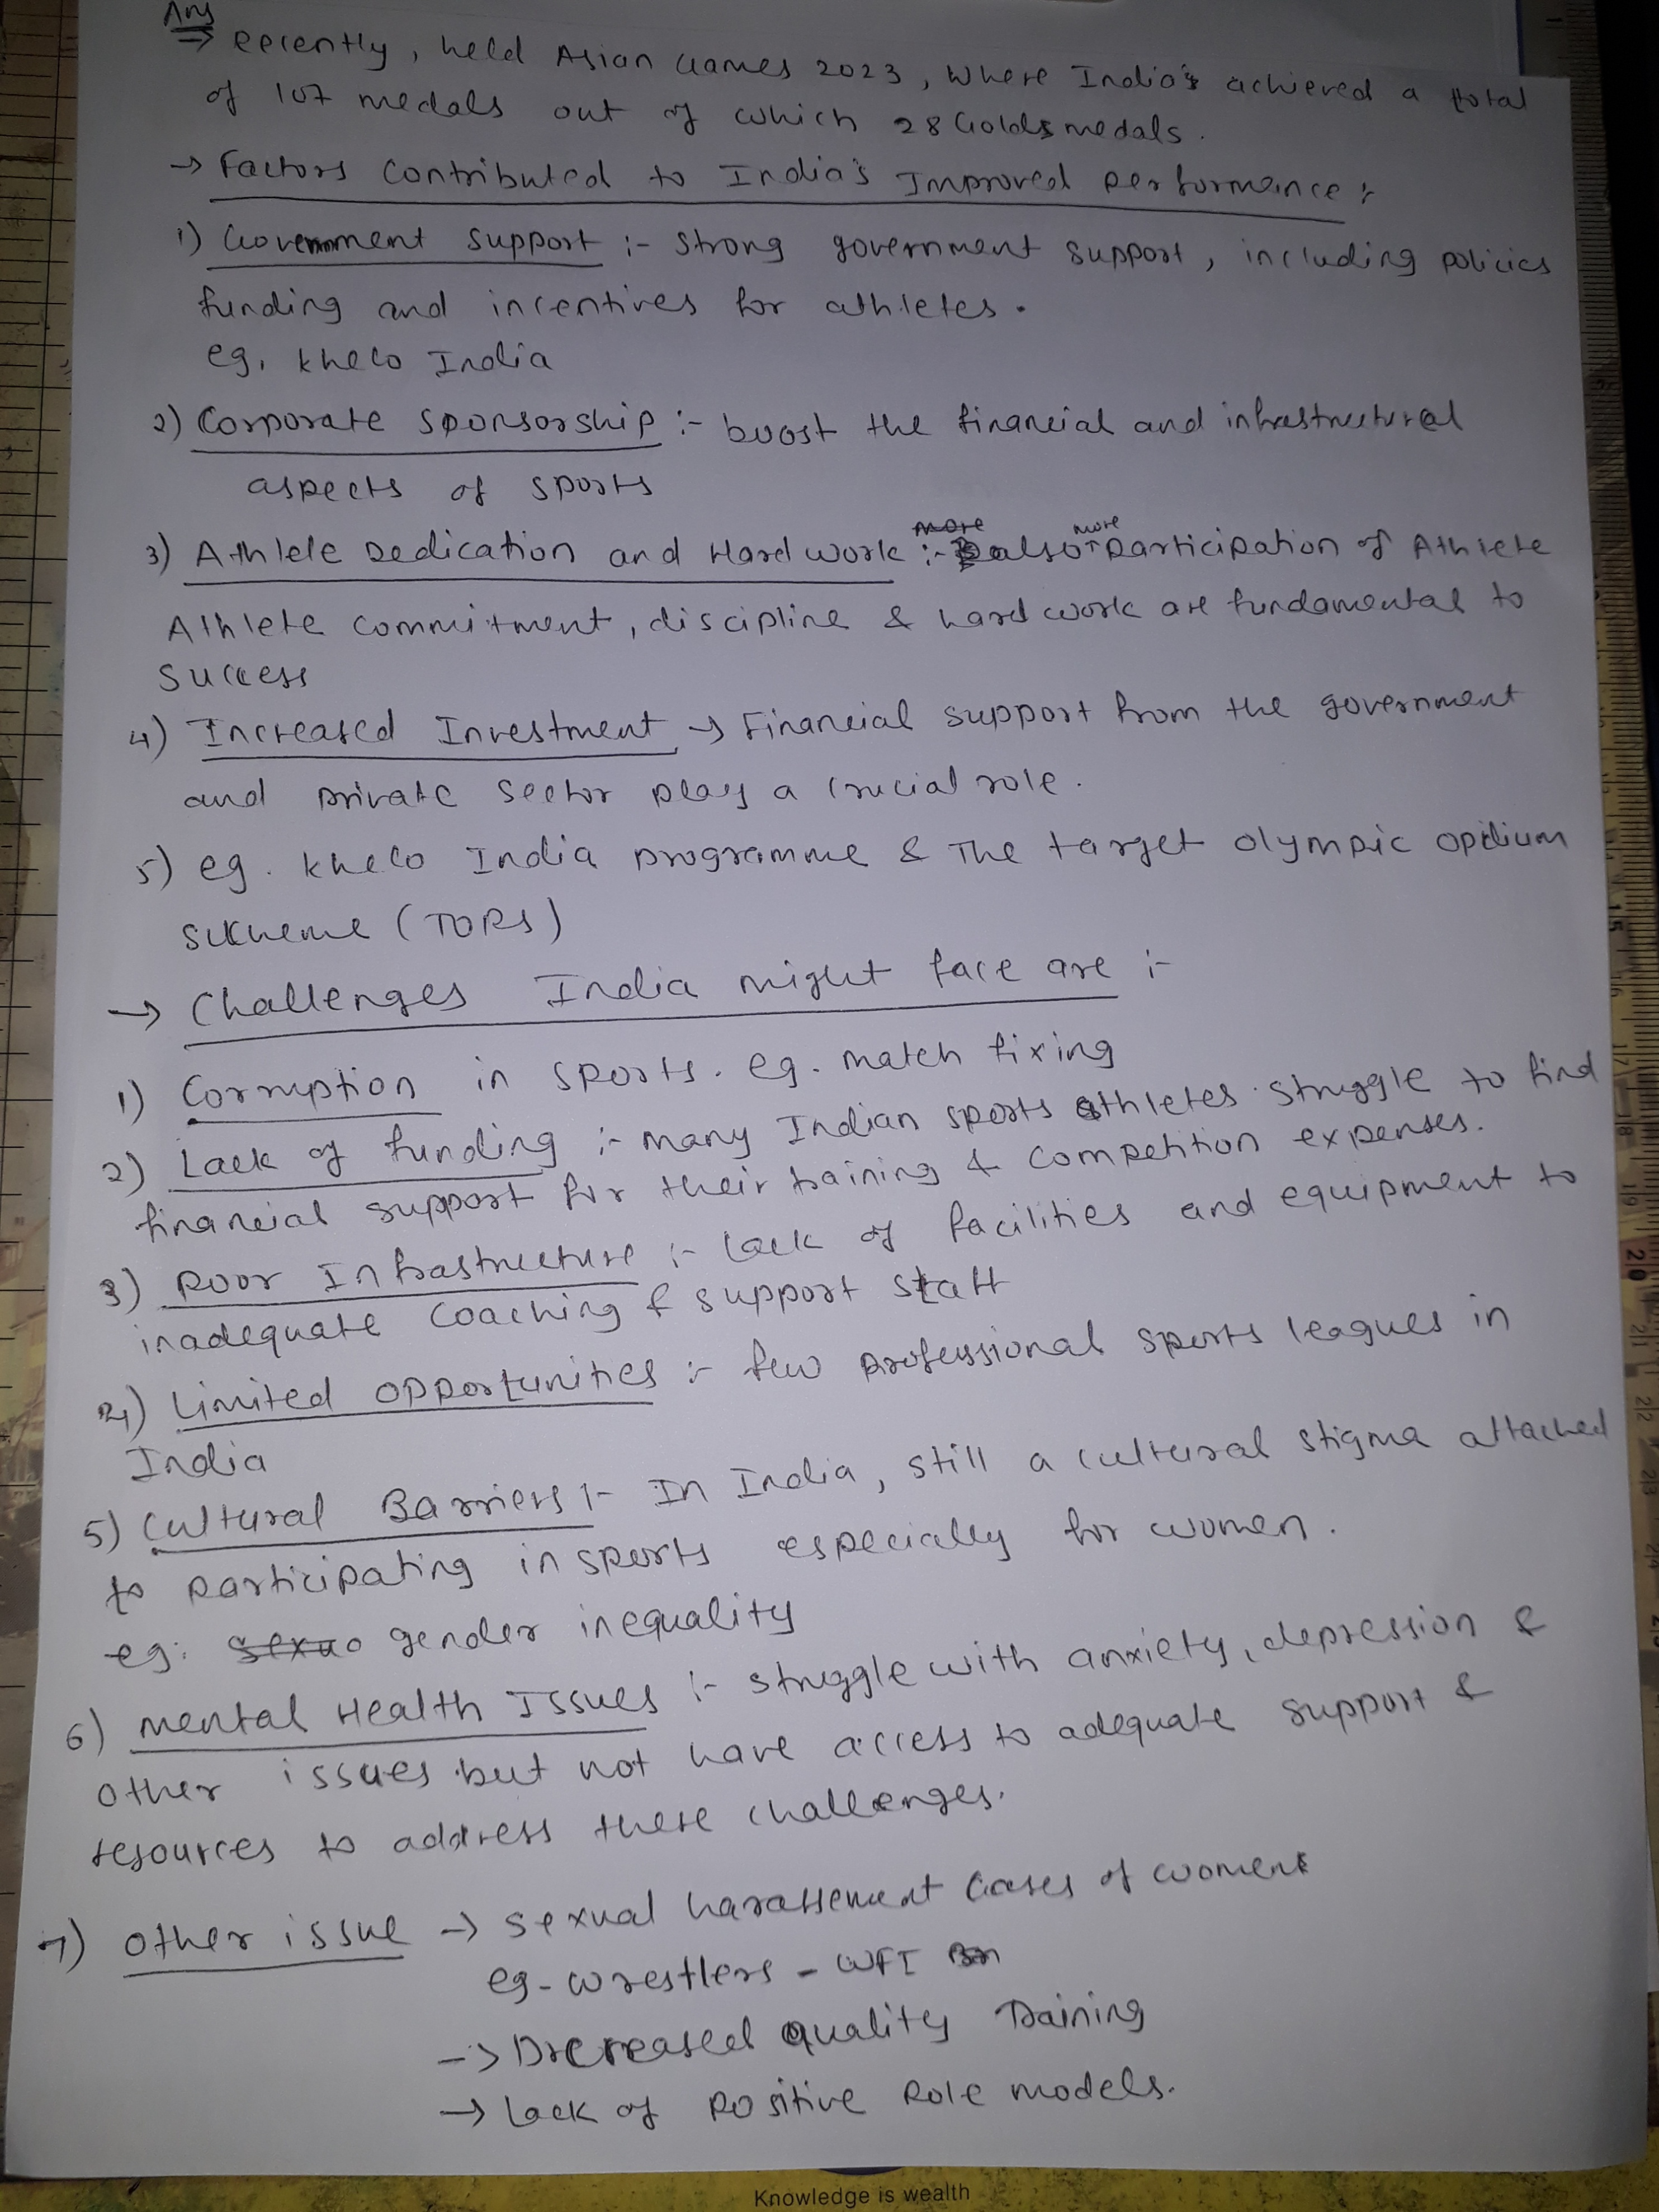 Ans
⇒ Recently, held Asian Games 2023, where India's achieved a total
of 107 medals out of which 28 Golds medals.
→ Factors contributed to India's Improved performance :
1) Government support :- strong government support, including policies
funding and incentives for athletes.
eg, khelo India
2) Corporate sponsorship :- boost the financial and infrastructural
aspects of sports
3) Athlete Dedication and Hard work :- also more participation of Athlete
Athlete commitment, discipline & hard work are fundamental to
success
4) Increased Investment → Financial support from the government
and private sector play a crucial role.
5) eg. khelo India programme & The target olympic
(TOPS)
→ Challenges India might face are :-
1) Corruption in sports. eg. match fixing
2) Lack of funding :- many Indian sports athletes struggle to find
financial support for their training & competition expenses.
3) Poor Infrastructure :- lack of facilities and equipment to
inadequate coaching & support staff
4) Limited opportunities :- few professional sports leagues in
India
5) Cultural Barriers :- In India, still a cultural stigma attached
to participating in sports especially for women.
eg: gender inequality
6) Mental Health Issues :- struggle with anxiety, depression &
other issues but not have access to adequate support &
resources to address these challenges.
7) other issue → sexual harassement cases of womens
eg - wrestlers - WFI
→ Decreased quality Training
→ Lack of Positive Role models.
Knowledge is wealth